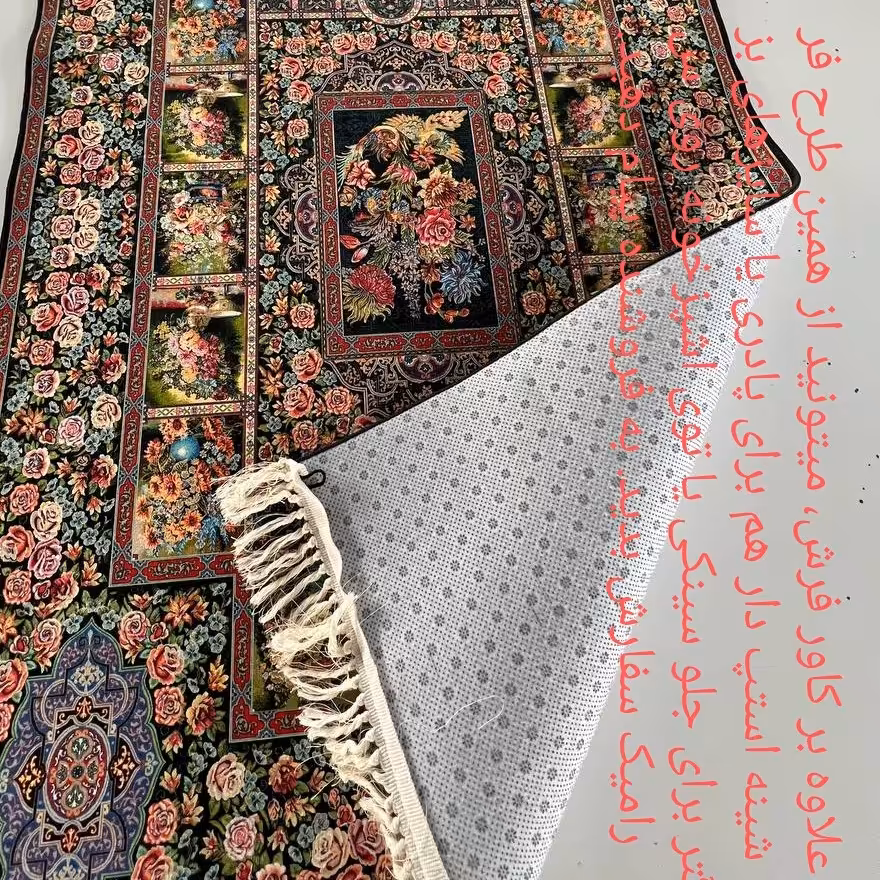 علاوه بر کاور فرش، میتونید از همین طرح فر
شینه استپ دار هم برای پادری یا سایزهای بز
گتر برای جلو سینکی یا توی اشپزخونه روی سر
رامیک سفارش بدید. به فروشنده پیام دهید